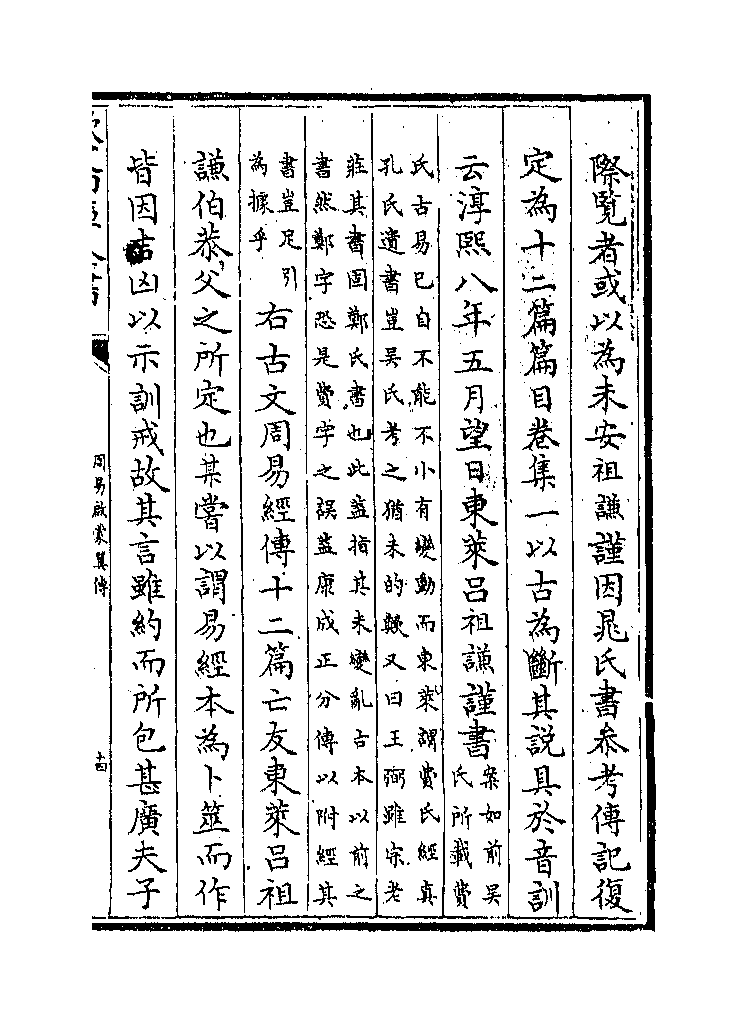 際覧者或以為未安祖謙謹因晁氏書参考傳記復
定為十二篇篇目卷集一以古為斷其説具於音訓
云淳熙八年五月望日東萊吕祖謙謹書
案如前吳
氏所載費
氏古易已自不能不小有變動而東萊謂費氏經真
孔氏遺書豈吳氏考之猶未的歟又曰王弼雖宗老
莊其書固鄭氏書也此葢指其未變亂古本以前之
書然鄭字恐是費字之誤葢康成正分傳以附經其
書豈足引
為據乎
右古文周易經傳十二篇亡友東萊吕祖
謙伯恭父之所定也某嘗以謂易經本為卜筮而作
皆因吉凶以示訓戒故其言雖約而所包甚廣夫子
周易啟蒙翼傳
十四